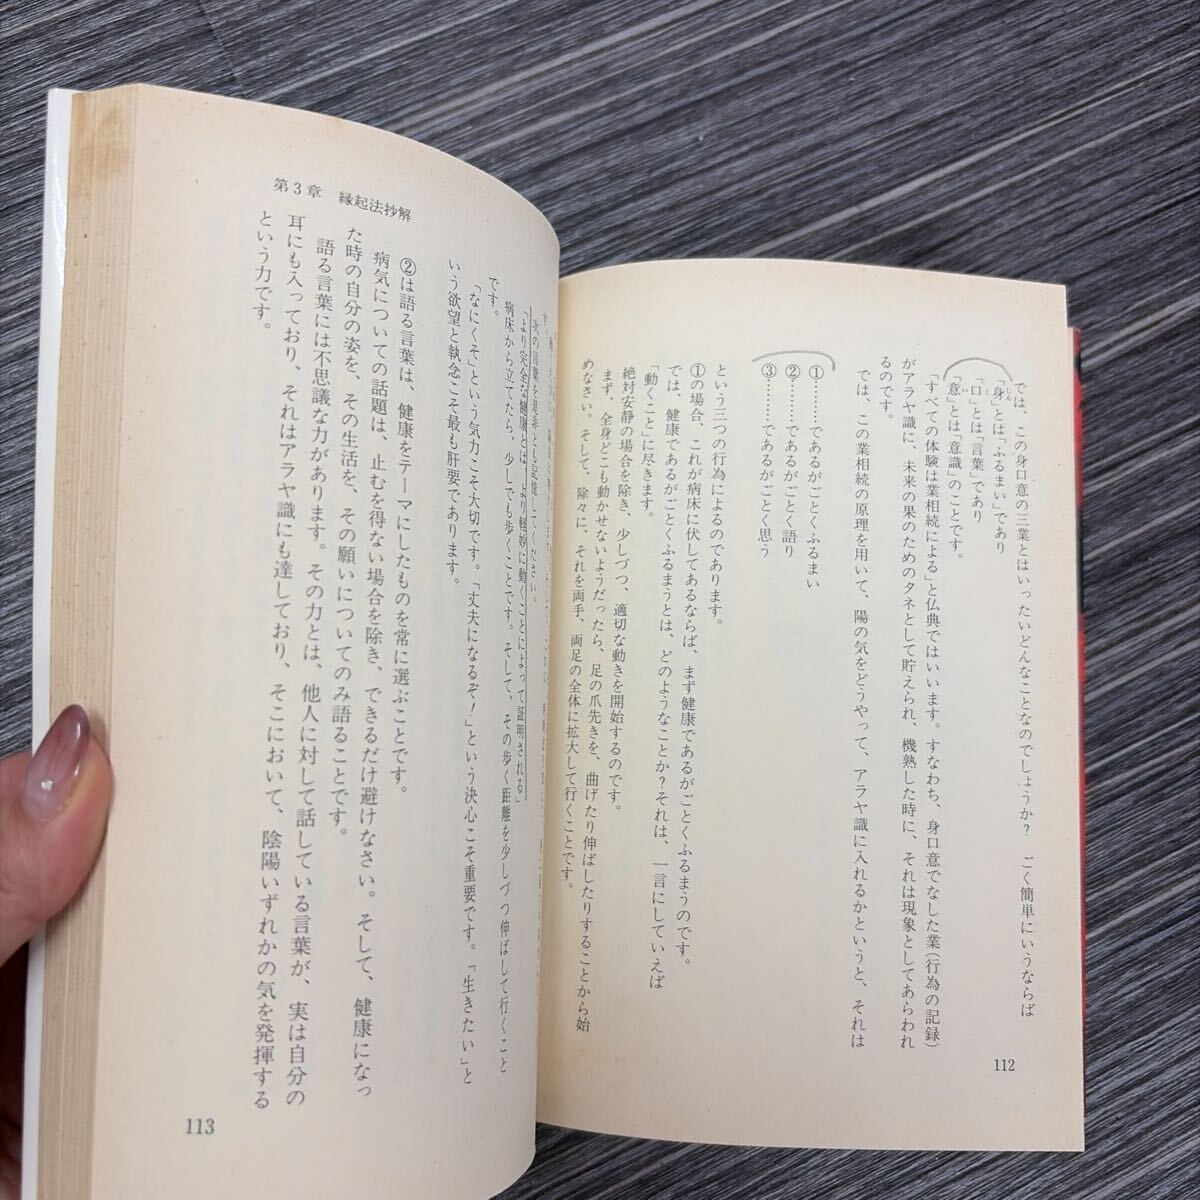 では、この身口意の三業とはいったいどんなことなのでしょうか？　ごく簡単にいうならば
「身」とは「ふるまい」であり
「口」とは「言葉」であり
「意」とは「意識」のことです。
「すべての体験は業相続による」と仏典ではいいます。すなわち、身口意でなした業（行為の記録）
がアラヤ識に、未来の果のためのタネとして貯えられ、機熟した時に、それは現象としてあらわれ
るのです。
では、この業相続の原理を用いて、陽の気をどうやって、アラヤ識に入れるかというと、それは
①………であるがごとくふるまい
②………であるがごとく語り
③………であるがごとく思う
という三つの行為によるのであります。
①の場合、これが病床に伏してあるならば、まず健康であるがごとくふるまうのです。
では、健康であるがごとくふるまうとは、どのようなことか？それは、一言にしていえば
「動くこと」に尽きます。
絶対安静の場合を除き、少しづつ、適切な動きを開始するのです。
まず、全身どこも動かせないようだったら、足の爪先きを、曲げたり伸ばしたりすることから始
めなさい。そして、除々に、それを両手、両足の全体に拡大して行くことです。
112
第3章　縁起法抄解
次の言葉を是非とも記憶してください。
「より完全な健康とは、より軽妙に動くことによって証明される」
病床から立てたら、少しでも歩くことです。そして、その歩く距離を少しづつ伸ばして行くこと
です。
「なにくそ」という気力こそ大切です。「丈夫になるぞ！」という決心こそ重要です。「生きたい」と
いう欲望と執念こそ最も肝要であります。
②は語る言葉は、健康をテーマにしたものを常に選ぶことです。
病気についての話題は、止むを得ない場合を除き、できるだけ避けなさい。そして、健康になっ
た時の自分の姿を、その生活を、その願いについてのみ語ることです。
語る言葉には不思議な力があります。その力とは、他人に対して話している言葉が、実は自分の
耳にも入っており、それはアラヤ識にも達しており、そこにおいて、陰陽いずれかの気を発揮する
という力です。
113